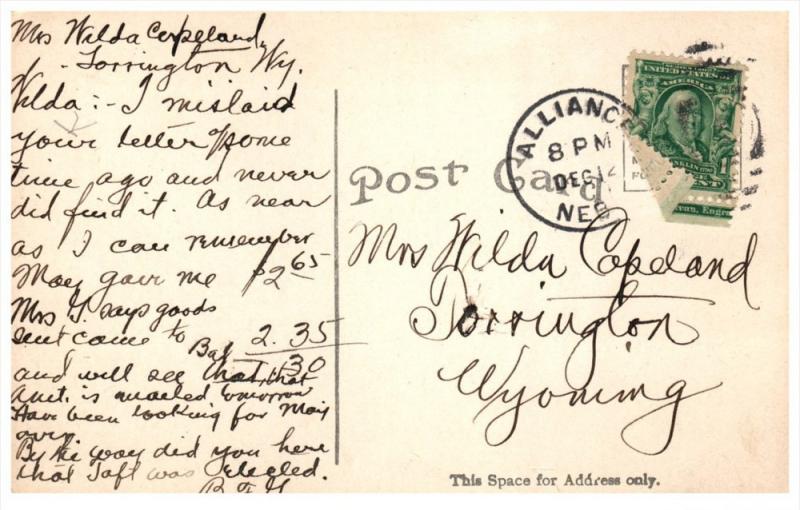 Mrs Wilda Copeland,
Torrington Wy.
Wilda:- I mislaid
your letter some
time ago and never
did find it. As near
as I can remember
May gave me $2 65
Mrs G. says goods
sent came to 2.35
Bal 30
and will see that that
amt. is mailed tomorrow
Have been looking for May
over.
By the way did you here
that Taft was Elected.
Post Card
ALLIANCE
8 PM
DEC 12
NEB
UNITED STATES
AMERICA
Mrs Wilda Copeland
Torrington
Wyoming
This Space for Address only.